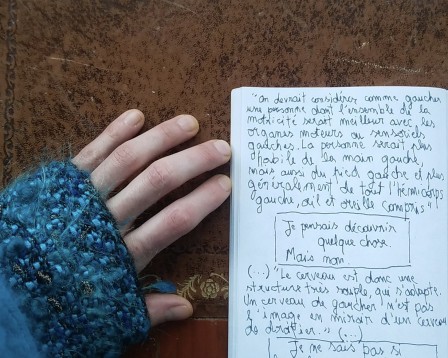 "On devrait considérer comme gaucher
une personne dont l'ensemble de la
motricité serait meilleur avec les
organes moteurs ou sensoriels
gauches. La personne serait plus
habile de la main gauche,
mais aussi du pied gauche et plus
généralement de tout l'hémicorps
gauche, œil et oreille compris".
Je pensais découvrir
quelque chose.
Mais non.
(...) "Le cerveau est donc une
structure très souple, qui s'adapte.
Un cerveau de gaucher n'est pas
l'image en miroir d'un cerveau
de droitier." (...)
Je ne sais pas si